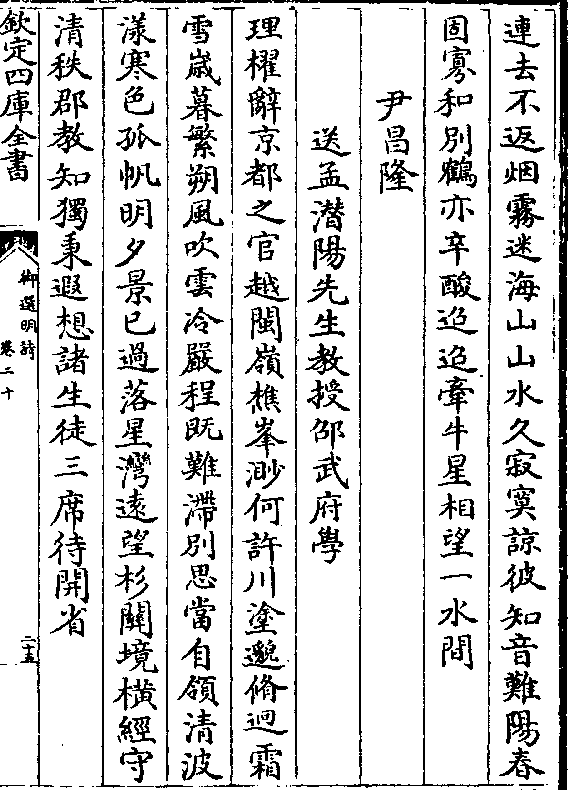 連去不返烟霧迷海山山水久寂寞諒彼知音難陽春
固寡和別鶴亦辛酸迢迢牽牛星相望一水間
尹昌隆
送孟潛陽先生教授邵武府學
理櫂辭京都之官越閩嶺樵峯渺何許川塗邈脩迥霜
雪嵗暮繁朔風吹雲冷嚴程既難滯別思當自領清波
漾寒色孤帆明夕景已過落星灣遠望杉關境橫經守
清秩郡教知獨秉遐想諸生徒三席待開省
欽定四庫全書
御選明詩
卷二十
二十五